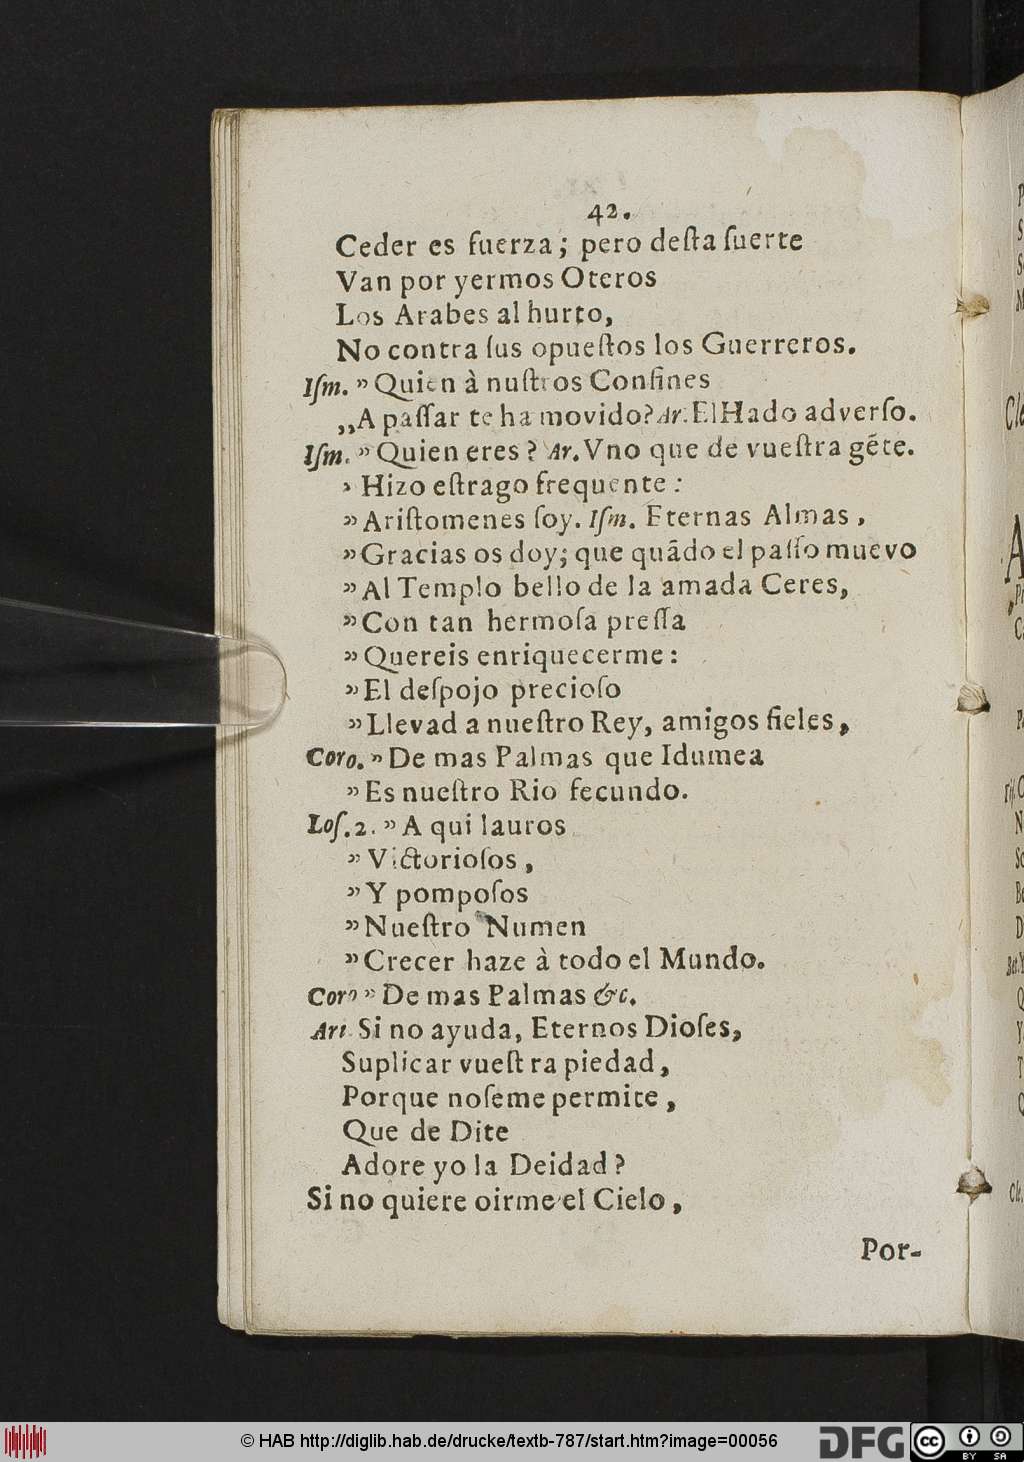 42.
Ceder es fuerza; pero deſta ſuerte
Van por yermos Oteros
Los Arabes al hurto,
No contra ſus opueſtos los Guerreros.
Iſm. ” Quien à nuſtros Confines
„A paſſar te ha movido? Ar. El Hado adverſo.
Iſm. ” Quien eres? Ar. Vno que de vueſtra gẽte.
” Hizo eſtrago frequente:
” Ariſtomenes ſoy. Iſm. Eternas Almas,
” Gracias os doy; que quãdo el paſſo muevo
” Al Templo bello de la amada Ceres,
” Con tan hermoſa preſſa
” Quereis enriquecerme:
” El deſpojo precioſo
” Llevad a nueſtro Rey, amigos fieles,
Coro. ” De mas Palmas que Idumea
” Es nueſtro Rio fecundo.
Loſ. 2. ” A qui lauros
” Victorioſos,
” Y pompoſos
” Nueſtro Numen
” Crecer haze à todo el Mundo.
Coro ” De mas Palmas &c.
Ari. Si no ayuda, Eternos Dioſes,
Suplicar vueſtra piedad,
Porque noſeme permite,
Que de Dite
Adore yo la Deidad?
Si no quiere oirme el Cielo,
Por-
© HAB http://diglib.hab.de/drucke/textb-787/start.htm?image=00056
DFG
cc BY SA